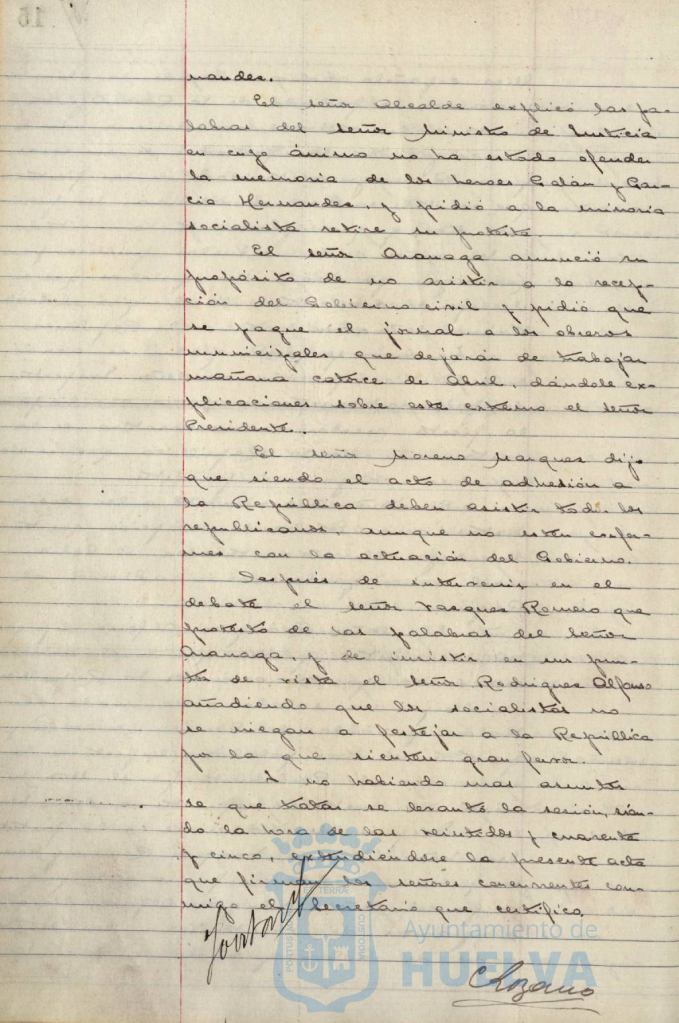 nandez.
El señor Alcalde explicó las pa-
labras del señor Ministro de Justicia
en cuyo ánimo no ha estado ofender
la memoria de los heroes Galán y Gar-
cia Hernandez, y pidió a la minoria
socialista retire su protesta.
El señor Aranaga anunció su
propósito de no asistir a la recep-
ción del Gobierno civil y pidió que
se pague el jornal a los obreros
municipales que dejarán de trabajar
mañana catorce de Abril, dándole ex-
plicaciones sobre este extremo el señor
Presidente.
El señor Moreno Marquez dijo
que siendo el acto de adhesión a
la República deben asistir todos los
republicanos, aunque no esten confor-
mes con la actuación del Gobierno.
Después de intervenir en el
debate el señor Vazquez Romero que
protestó de las palabras del señor
Aranaga, y de insistir en sus pun-
tos de vista el señor Rodriguez Alfonso
añadiendo que los socialistas no
se niegan a festejar a la República
por la que sienten gran fervor.
Y no habiendo mas asuntos
de que tratar se levantó la sesión, sien-
do la hora de las veintidos y cuarenta
y cinco, extendiéndose la presente acta
que firman los señores concurrentes con-
migo el Secretario que certifico.
Ayuntamiento de
HUELVA